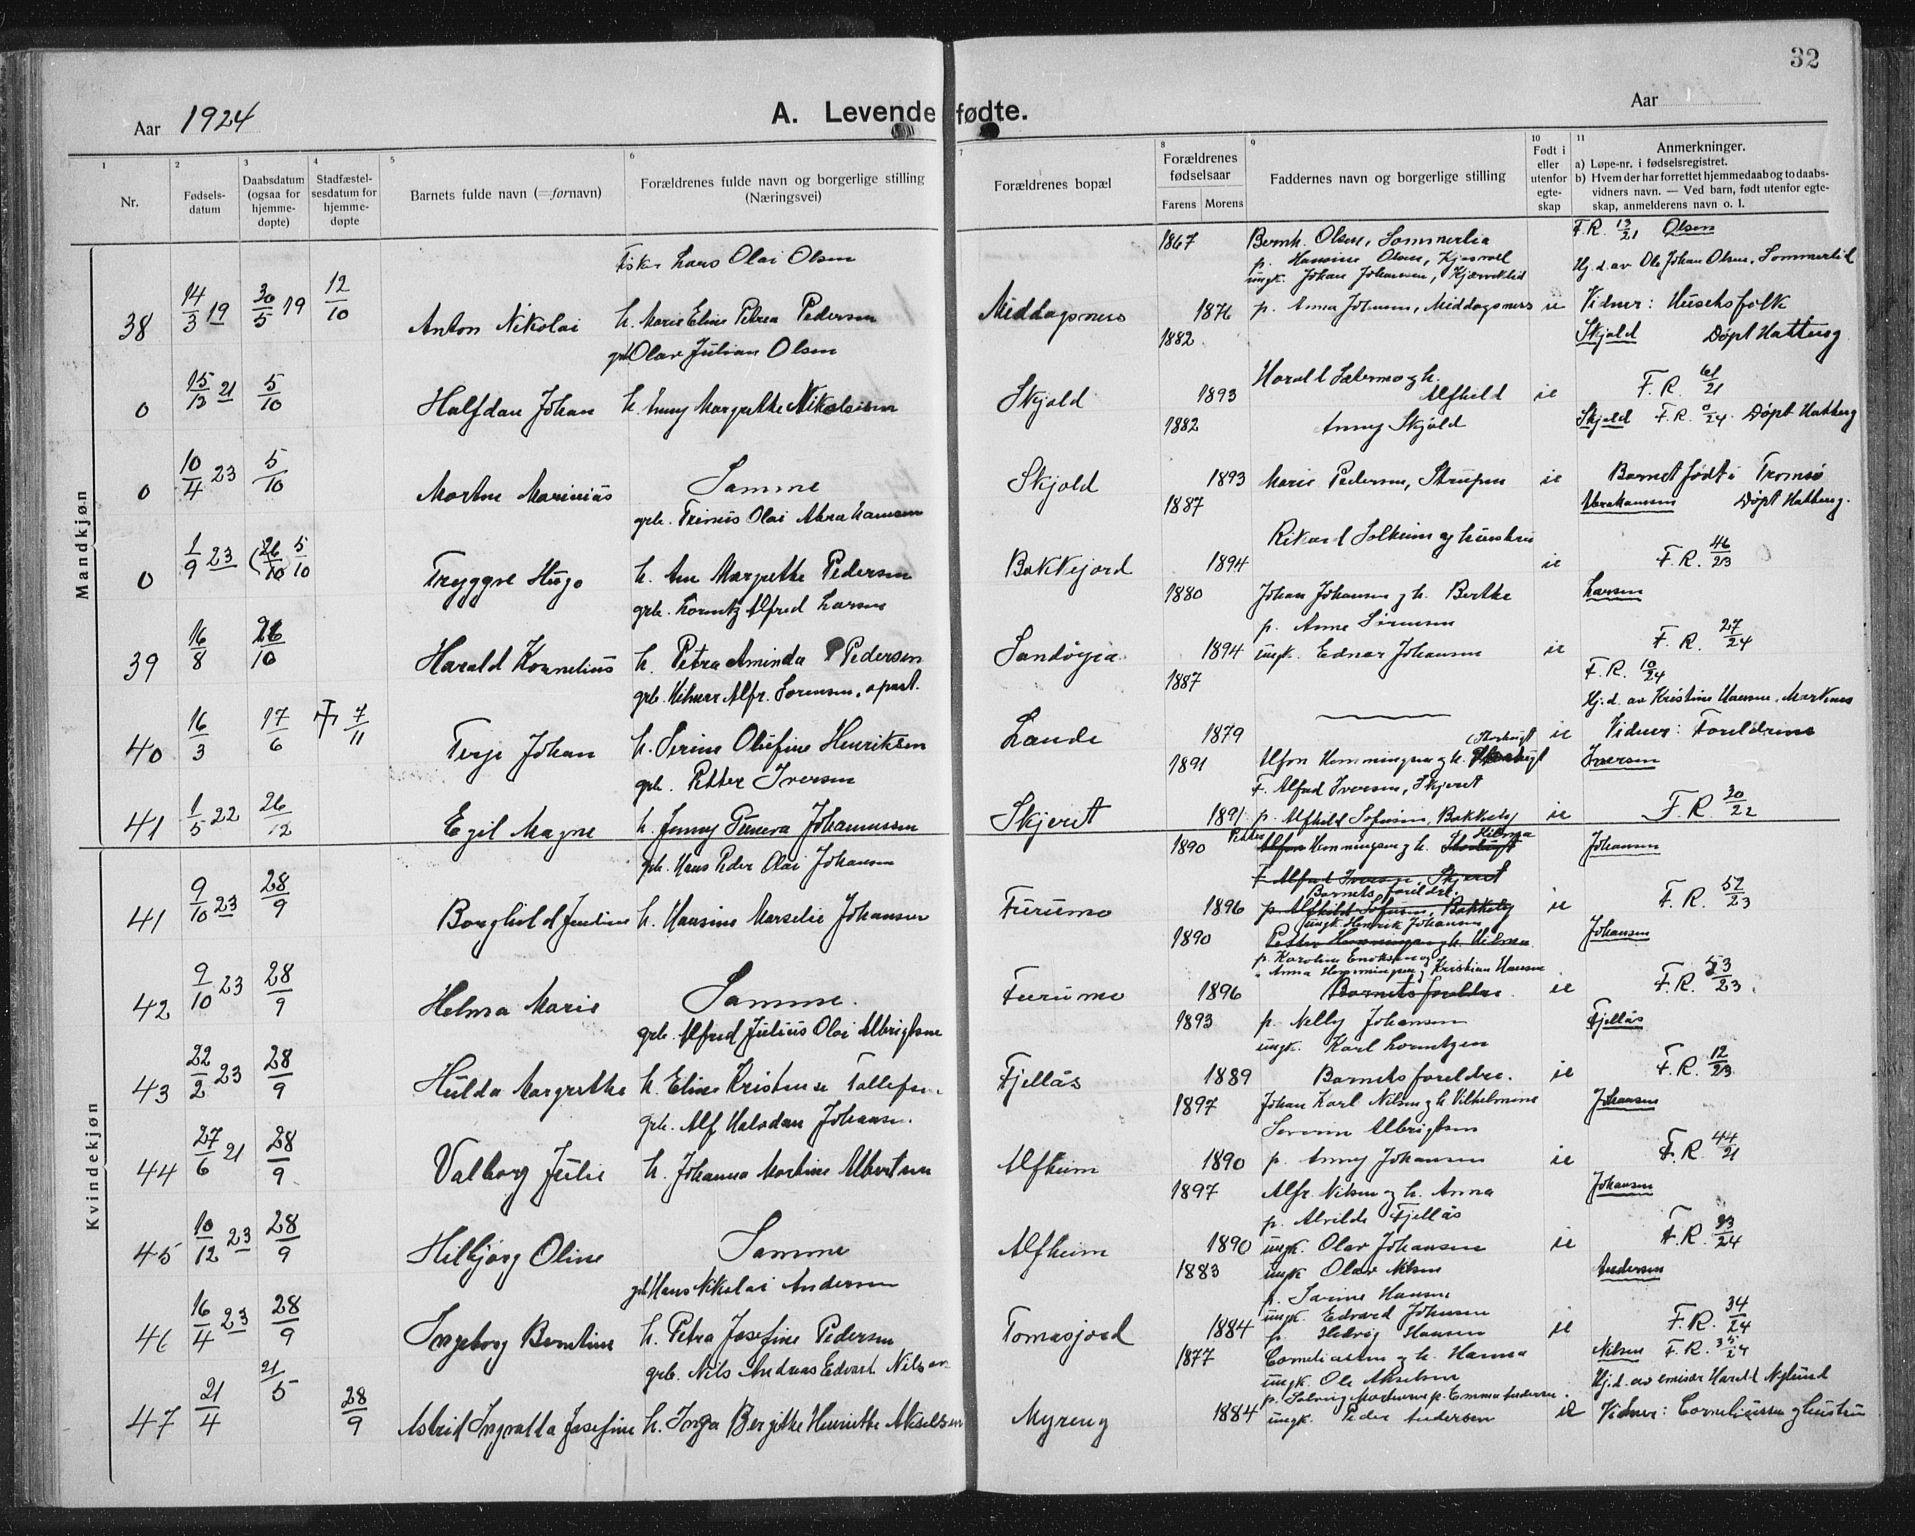 32
Aar 1924
A. Levende fødte.
Aar
1 2 3 4 5 6 7 8 9 10 11
Nr.
Fødsels-datum
Daabsdatum (ogsaa for hjemme-døpte)
Stadfæstel-sesdatum for hjemme-døpte
Barnets fulde navn (= fornavn)
Forældrenes fulde navn og borgerlige stilling (Næringsvei)
Forældrenes bopæl
Forældrenes fødselsaar
Farens Morens
Faddernes navn og borgerlige stilling
Født i eller utenfor egte-skap
Anmerkninger.
a) Løpe-nr. i fødselsregistret.
b) Hvem der har forrettet hjemmedaab og to daabs-vidners navn. — Ved barn, født utenfor egte-skap, anmelderens navn o. l.
Mandkjøn
Fisker Lars Olai Olsen 1867 Bernh. Olsen, Sommerlia F.R. 13/21 Olsen
p. Hansine Olsen,
ungk. Johan Johansen, Hj.d. av Ole Johan Olsen, Sommerlid
38 14/3 19 30/5 19 12/10 Anton Nikolai h. Marie Eline Petrea Pedersen Middagsnes 1876 p. Anna Johnsen, Middagsnes ie Vidner: Husetsfolk
grb. Olav Julian Olsen 1882 Skjold Døpt Hatteng
0 15/12 21 5/10 Halfdan Johan h. Emmy Margrethe Nikolaisen Skjold 1893 Harald Sætermo og h. Alfhild ie F.R. 61/21
1882 Anny Skjold Skjold F.R. 0/24. Døpt Hatteng
0 10/4 23 5/10 Morten Marinius Samme Skjold 1893 Marie Pedersen, Strupen ie Barnet født i Tromsø
grb. Trinus Olai Abrahamsen 1887 Abrahamsen Døpt Hatteng.
0 1/9 23 (26/10) 5/10 Tryggve Hugo h. Ane Margrethe Pedersen Bakkejord 1894 Rikard Solheim og hustru ie F.R. 46/23
grb. Lorentz Alfred Larsen 1880 Johan Johansen og h. Berthe Larsen
p. Anne Sørensen
39 16/8 26/10 Harald Kornelius h. Petra Aminda Pedersen Sandøyra 1894 ungk. Ednar Johansen ie F.R. 27/24
grb. Hilmar Alfr. Sørensen, apart. 1887 F.R. 10/24
Hj.d. av Kristine Hansen, Markenes
40 16/3 17/6 7/11 Terje Johan h. Serine Olufine Henriksen Lande 1879 ie Vidner: Foreldrene
grb. Petter Iversen 1891 Alfon Hemmingsen og h. Iversen
F. Alfred Iversen, Skjeret
41 1/5 22 26/12 Egil Magne h. Jenny Johannessen Skjeret 1891 p. Alfhild Sofusen, Bakkeby ie F.R. 30/22
Kvindekjøn
grb. Hans Peder Olai Johansen 1890 Petter Hemmingsen og h. Hilma Johansen
F. Alfred Iversen, Skjeret
Barnets foreldre.
41 9/10 23 28/9 Borghild Jentine h. Hansine Marselie Johansen Furumo 1896 p. Alfhild Sofusen, Bakkeby ie F.R. 52/23
ungk. Henrik Johansen
1890 Petter Hemmingsen og h. Hilma Johansen
p. Karoline Enoksen og
Anna Hemmingsen, Kristian Hansen
42 9/10 23 28/9 Helma Marie Samme. Furumo 1896 Barnets foreldre. ie F.R. 53/23.
grb. Alfred Julius Olai Albrigtsen 1893 p. Nelly Johansen Fjellås
ungk. Karl Lorentzen
43 22/2 23 28/9 Hulda Margrethe h. Eline Kristense Tollefsen Fjellås 1889 Barnets foreldre. ie F.R. 12/23
grb. Alf Halvdan Johansen. 1897 Johan Karl Nilsen og h. Vilhelmine Johansen
Serine Albrigtsen
44 27/6 21 28/9 Valborg Julie h. Johanna Martine Albertsen Alfheim 1890 p. Anny Johansen ie F.R. 44/21
1897 Alfr. Nilsen og h. Anna Johansen
p. Alvilde Fjellås
45 10/12 23 28/9 Hilbjørg Oline Samme Alfheim 1890 ungk. Olav Johansen ie F.R. 93/24
grb. Hans Nikolai Andersen 1883 ungk. Olav Nilsen Andersen
p. Sarine Hansen
ungk. Edvard Johnsen
46 16/4 23 28/9 Ingeborg Berntine h. Petra Josefine Pedersen Tomasjord 1884 p. Hedvig Hansen ie F.R. 34/24
grb. Nils Andreas Edvart Nilsen 1877 Corneliussen og h. Hanna Nilsen F.R. 35/24
ungk. Ole Akselsen Hj.d. av emisær Harald Nylund
p. Solveig p. Emma Andersen.
47 21/4 21/5 28/9 Astrid Ingvalda Josefine h. Inga Bergitte Henriette Akselsen Myreng 1884 ungk. Peder Andersen ie Vidner: Corneliussen og hustru